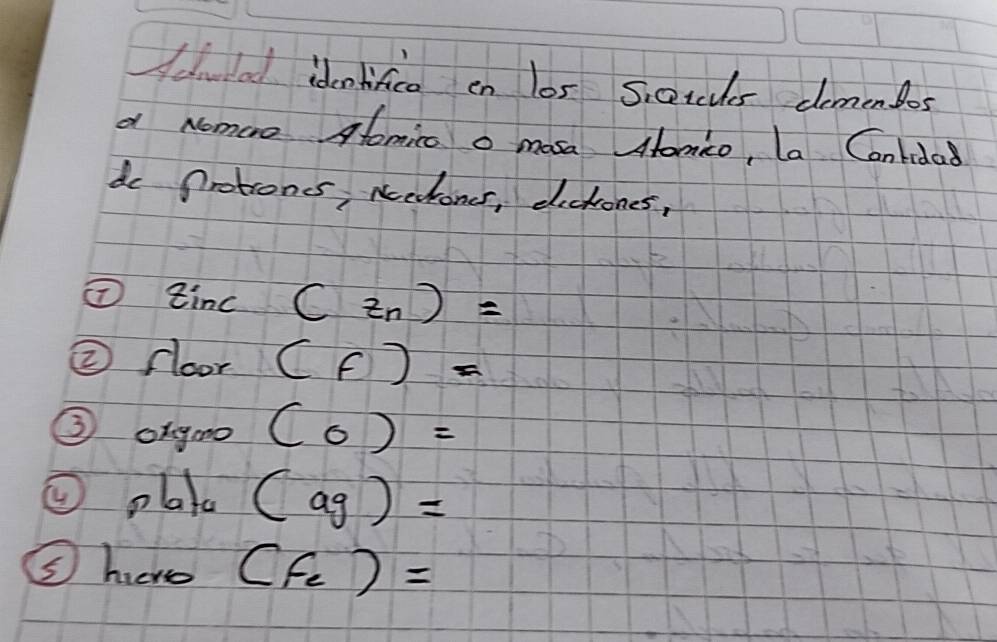 Actividad identifica en los Siguientes elementos
el Numero Atomico o masa Atomico, la Cantidad
de Protrones, Neutrones, electrones,
① Zinc (Zn) =
② floor (F) =
③ oxigeno (O) =
④ plata (ag) =
⑤ hierro (Fe) =